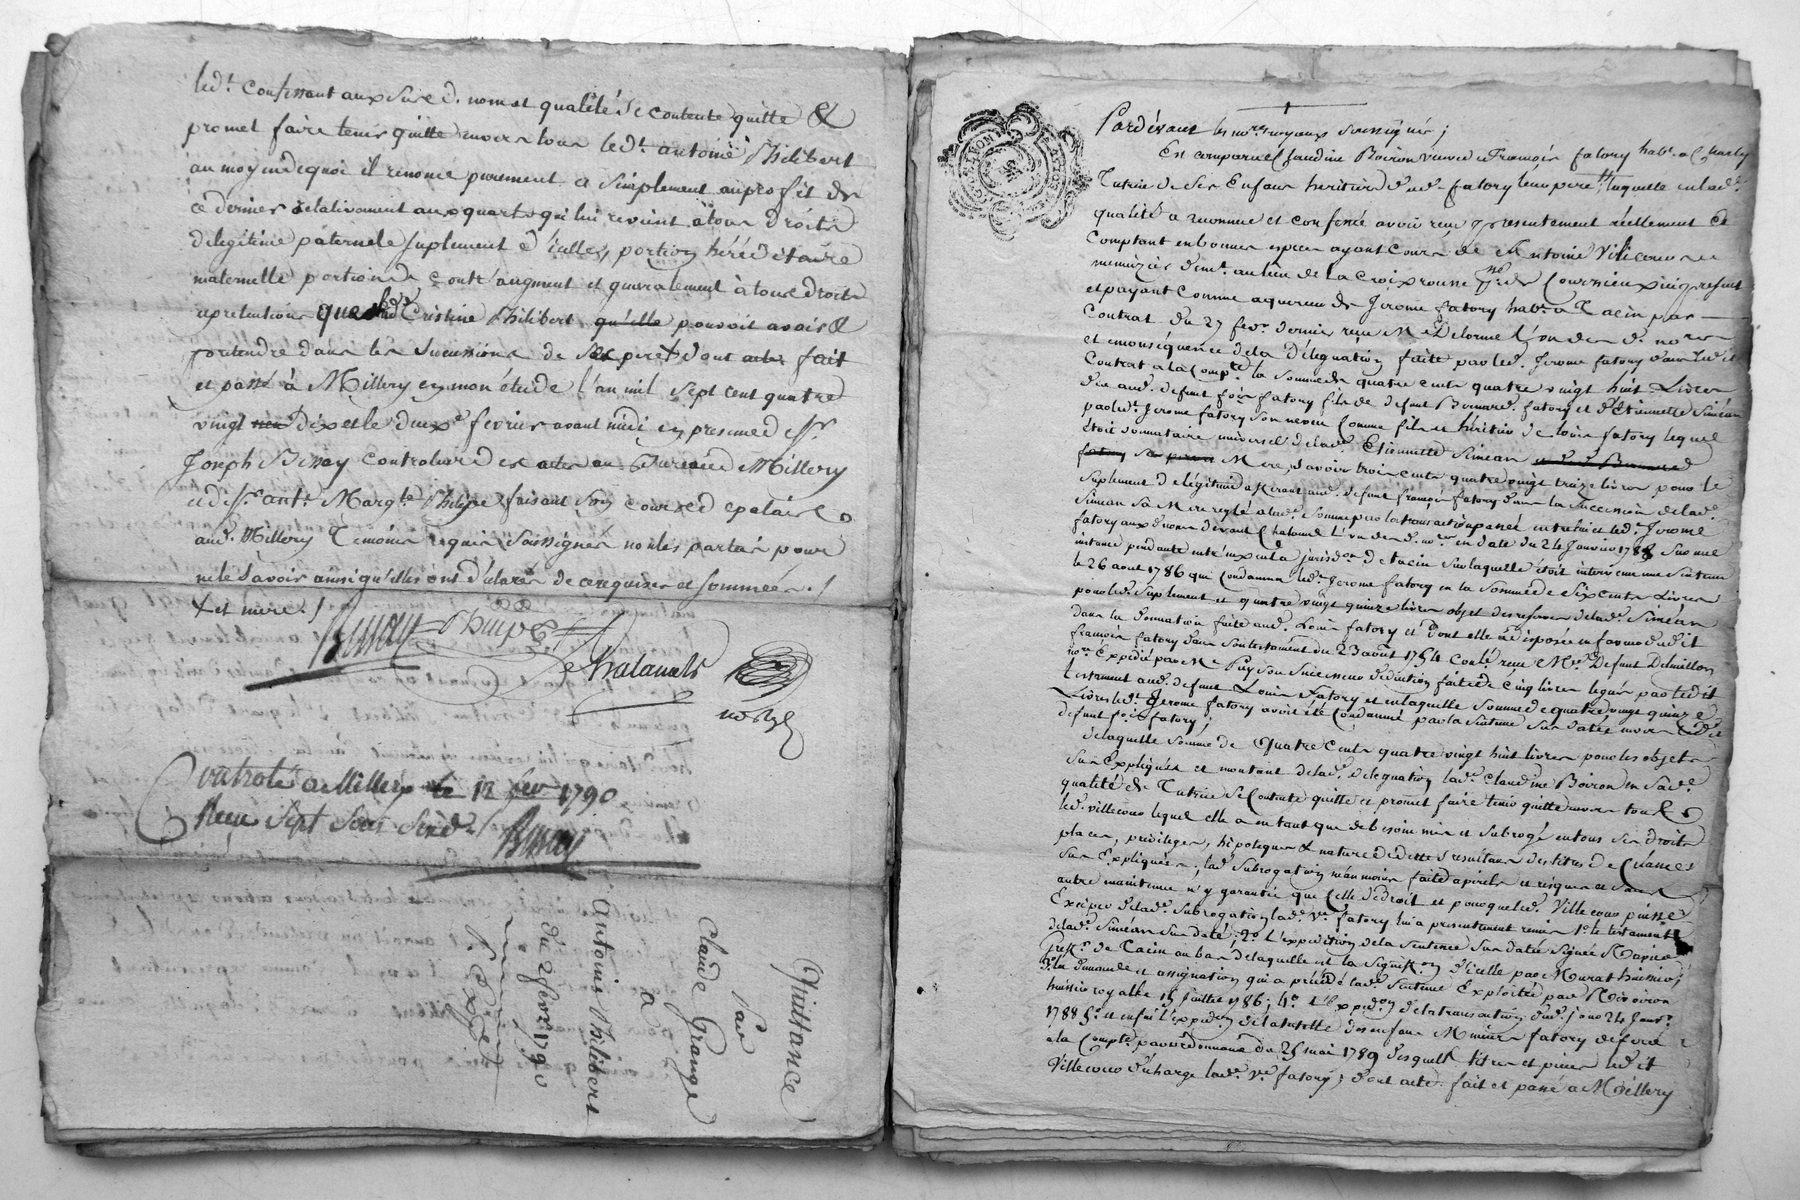 led.t Confessant aux susd. nom et qualité se contente quitte &
promet faire tenir quitte envers tous led.t antoine Philibert
au moyen de quoi il renonce purement & simplement au profit de
ce dernier relativement aux quarts qui lui revient à tous droits
de légitime paternelle suplement d'icelles, portion héréditaire
maternelle portion de contr'augment et généralement à tous droits
& pretentions que lad.e Cristine Philibert qu'elle pouvoit avoir &
pretendre dans les successions de ses pere + dont acte fait
et passé à Millery en mon étude l'an mil sept cent quatre
vingt dix et le deux.e fevrier avant midi en presence de s.r
Joseph Bissay controleur des actes au Bureau de Millery
et de s.r ant.e Marg.te Philipe faisant son cours de
aud. Millery Temoins requis soussignés non les parties pour
ne le savoir ainsi qu'elles ont déclaré de ce requises et sommées . /
+ et mere . /
Bissay Philipe
Chalands
not.re
Controlé à Millery le 12 fev.r 1790
Reçu sept sous six d. /
Bissay
Quittance
Par
Claude Grange
à
antoine Philibert
du 2 fevr. 1790
Pardevant les no.res royaux soussignés ;
Est comparue Claudine Boiron veuve de François fatory hab.te à Charly
Tutrice de ses Enfans heritiers dud. fatory leur pere, laquelle en lad.e
qualité a reconnu et confessé avoir reçu presentement réellement &
Comptant en bonnes especes ayant cours de Antoine Villecour
menuizier dem.t au lieu de la Croix rousse p.sse de Cournieux ici present
et payant comme aquereur de Jerome fatory hab.t à Tacin par
Contrat du 27 fev.r dernier reçu M.e Delorme l'un des d. no.res
et en conséquence de la délégation faite par led. Jerome fatory dans led.
Contrat à la Comp.te la somme de quatre cents quatre vingt huit Livres
due aud. defunt fçois fatory fils de defunt Bernard fatory et d'Etiennette Siméan
par led.t Jerome fatory son neveu comme fils et héritier de Louis fatory lequel
étoit donnataire universel de lad.e Etiennette Siméan
sa Mere, savoir trois cents quatre vingt treize livres pour le
suplement de légitime aud. defunt françois fatory dans la succession de lad.e
Siméan sa Mere reglé à lad.e somme par la transaction passée entre lui et led. Jerome
fatory aux d. noms devant Chaland l'un des d. no.res en date du 24 Janvier 1788 sur une
instance pendante entre eux en la jurisd.on de Tacin sur laquelle étoit intervenue Sentence
le 26 aout 1786 qui condamna led. Jerome fatory en la somme de six cents Livres
pour led. suplement et quatre vingt quinze livres objet des reserves de lad.e Siméan
dans la donnation faite aud. Louis fatory et dont elle a disposé en faveur dud.it
françois fatory dans son testament du 23 aout 1754 reçu M.e Defunt Delmillon
no.re Expédié par M.e Puy son successeur déduction faite de cinq livres leguées par led.it
testament aud. defunt Louis Fatory et en laquelle somme de quatre vingt quinze
Livres led.t Jerome fatory avoit été condamné par la Sentence sus datée envers led.it
defunt fçois fatory ;
de laquelle somme de quatre cents quatre vingt huit livres pour les objets
sus Expliqués et montant de lad.e délégation lad.e Claudine Boiron en sad.e
qualité de Tutrice se Contente quitte et promet faire tenir quitte envers tous
led. villecour lequel elle a en tant que de besoin mis et subrogé en tous ses droits
places, privileges, hipoteques & nature de dette resultans des titres de Créances
sus Expliquées ; lad.e subrogation néanmoins faite à perils et risques et sans
autre maintenue n'y garantie que celle de droit et pour que led. Villecour puisse
Exciper de lad.e subrogation lad.e v.e fatory lui a presentement remis 1.° le testament
de lad.e Siméan sus daté ; 2.° L'expédition de la sentence sus datée signée
Gref.er de Tacin au bas de laquelle est la signifi.on d'icelle par Morat huissier
3.° la demande et assignation qui a précédé lad.e sentence Exploitée par
huissier royal le 15 Juillet 1786 ; 4.° L'expéd.on de la transaction dud. jour 24 Janv.r
1788 5.° et enfin l'expéd.on de la tutelle des enfans Mineurs fatory déferée
à la Compte. par ordonnance du 25 mai 1789 desquels titres et pieces led.it
Villecour décharge lad.e v.e fatory ; dont acte. fait et passé à Millery